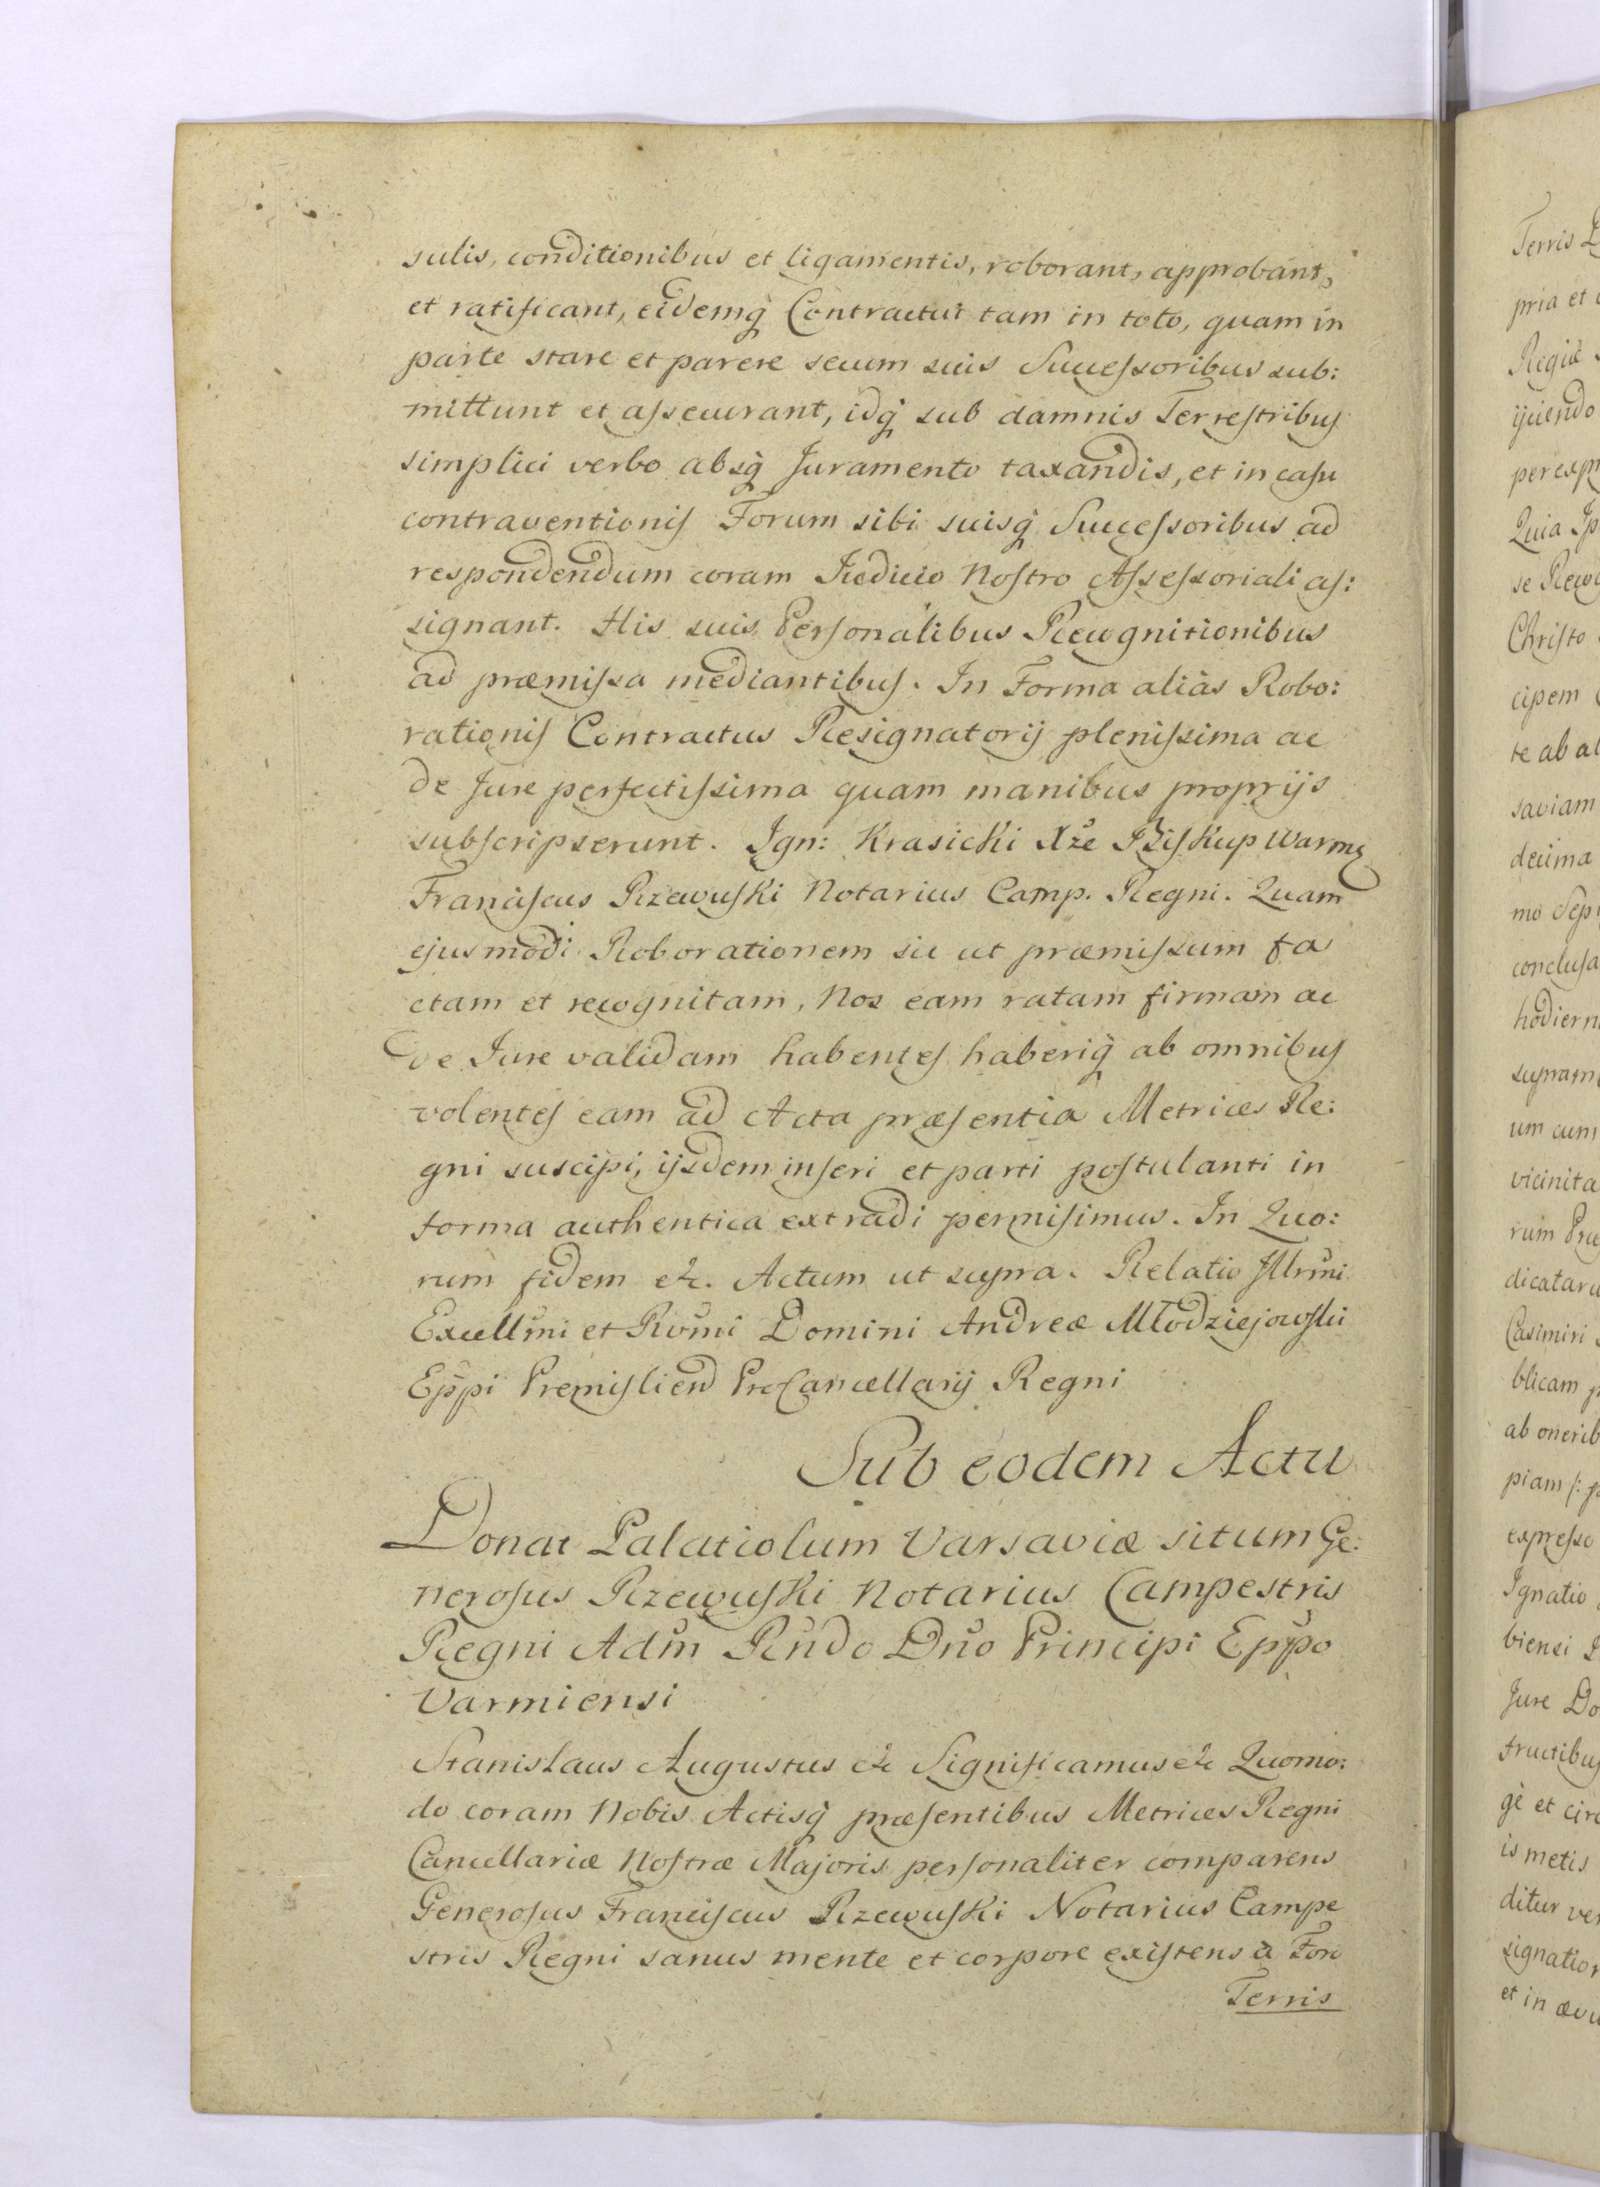 sulis, conditionibus et ligamentis, roborant, approbant,
et ratificant, eidemq́ Contractui tam in toto, quam in
parte stare et parere secum suis Succeſsoribus sub:
mittunt et aſsecurant, idq́ sub damnis Terreſtribuſ
simplici verbo absq́ Juramento taxandis, et in caſu
contraventioniſ Forum sibi suisq́ Succeſsoribus ad
respondendum coram Judicio Noſtro Aſseſsoriali aſ:
signant. His suis Perſonalibus Recognitionibus
ad præmiſsa mediantibuſ. In Forma aliàs Robo:
rationiſ Contractus Resignatorij pleniſsima ac
de Jure perfectiſsima quam manibus proprijs
subſcripserunt. Ign: Krasicki Xże Biſkup Warmſ
Franciſcus Rzewuſki Notarius Camp. Regni. Quam
ejusmodi Roborationem sic ut præmiſsum fa
ctam et recognitam, Nos eam ratam firmam ac
de Jure validam habenteſ haberiq́ ab omnibuſ
volenteſ eam ad Acta præſentia Metrices Re:
gni suscipi, ijsdem inſeri et parti poſtulanti in
forma authentica extradi permiſimus. In Quo:
rum fidem etc. Actum ut supra. Relatio Jllrm̃i
Excellm̃i et Rvm̃i Domini Andreæ Młodziejowſki
Epp̃i Premiſlien ProCancellarij Regni
Sub eodem Actu
Donat Palatiolum Varsaviæ situm Ge:
neroſus Rzewuſki Notarius Campestris
Regni Adm̃ Rñdo Dño Principi Epp̃o
Varmiensi
Stanislaus Augustus etc Significamus etc Quomo:
do coram Nobis Actisq́ præſentibus Metrices Regni
Cancellariæ Noſtræ Majoris perſonaliter comparens
Generoſus Franciſcus Rzewuſki Notarius Campe
stris Regni sanus mente et corpore exiſtens à Foro
Terris
Terris
pria et
Regiæ
ijciendo
per expr
Quia Ip
se Rewo
Chriſto
cipem
te ab al
saviam
decima
mo Sep
concluſa
hodiern
supram
um cum
vicinita
rum Præ
dicataru
Casimiri
blicam p
ab onerib
piam /: p
expreſso
Ignatio
biensi
Jure Do
fructibuſ
gè et circ
is metis
ditur ver
signatior
et in ævu